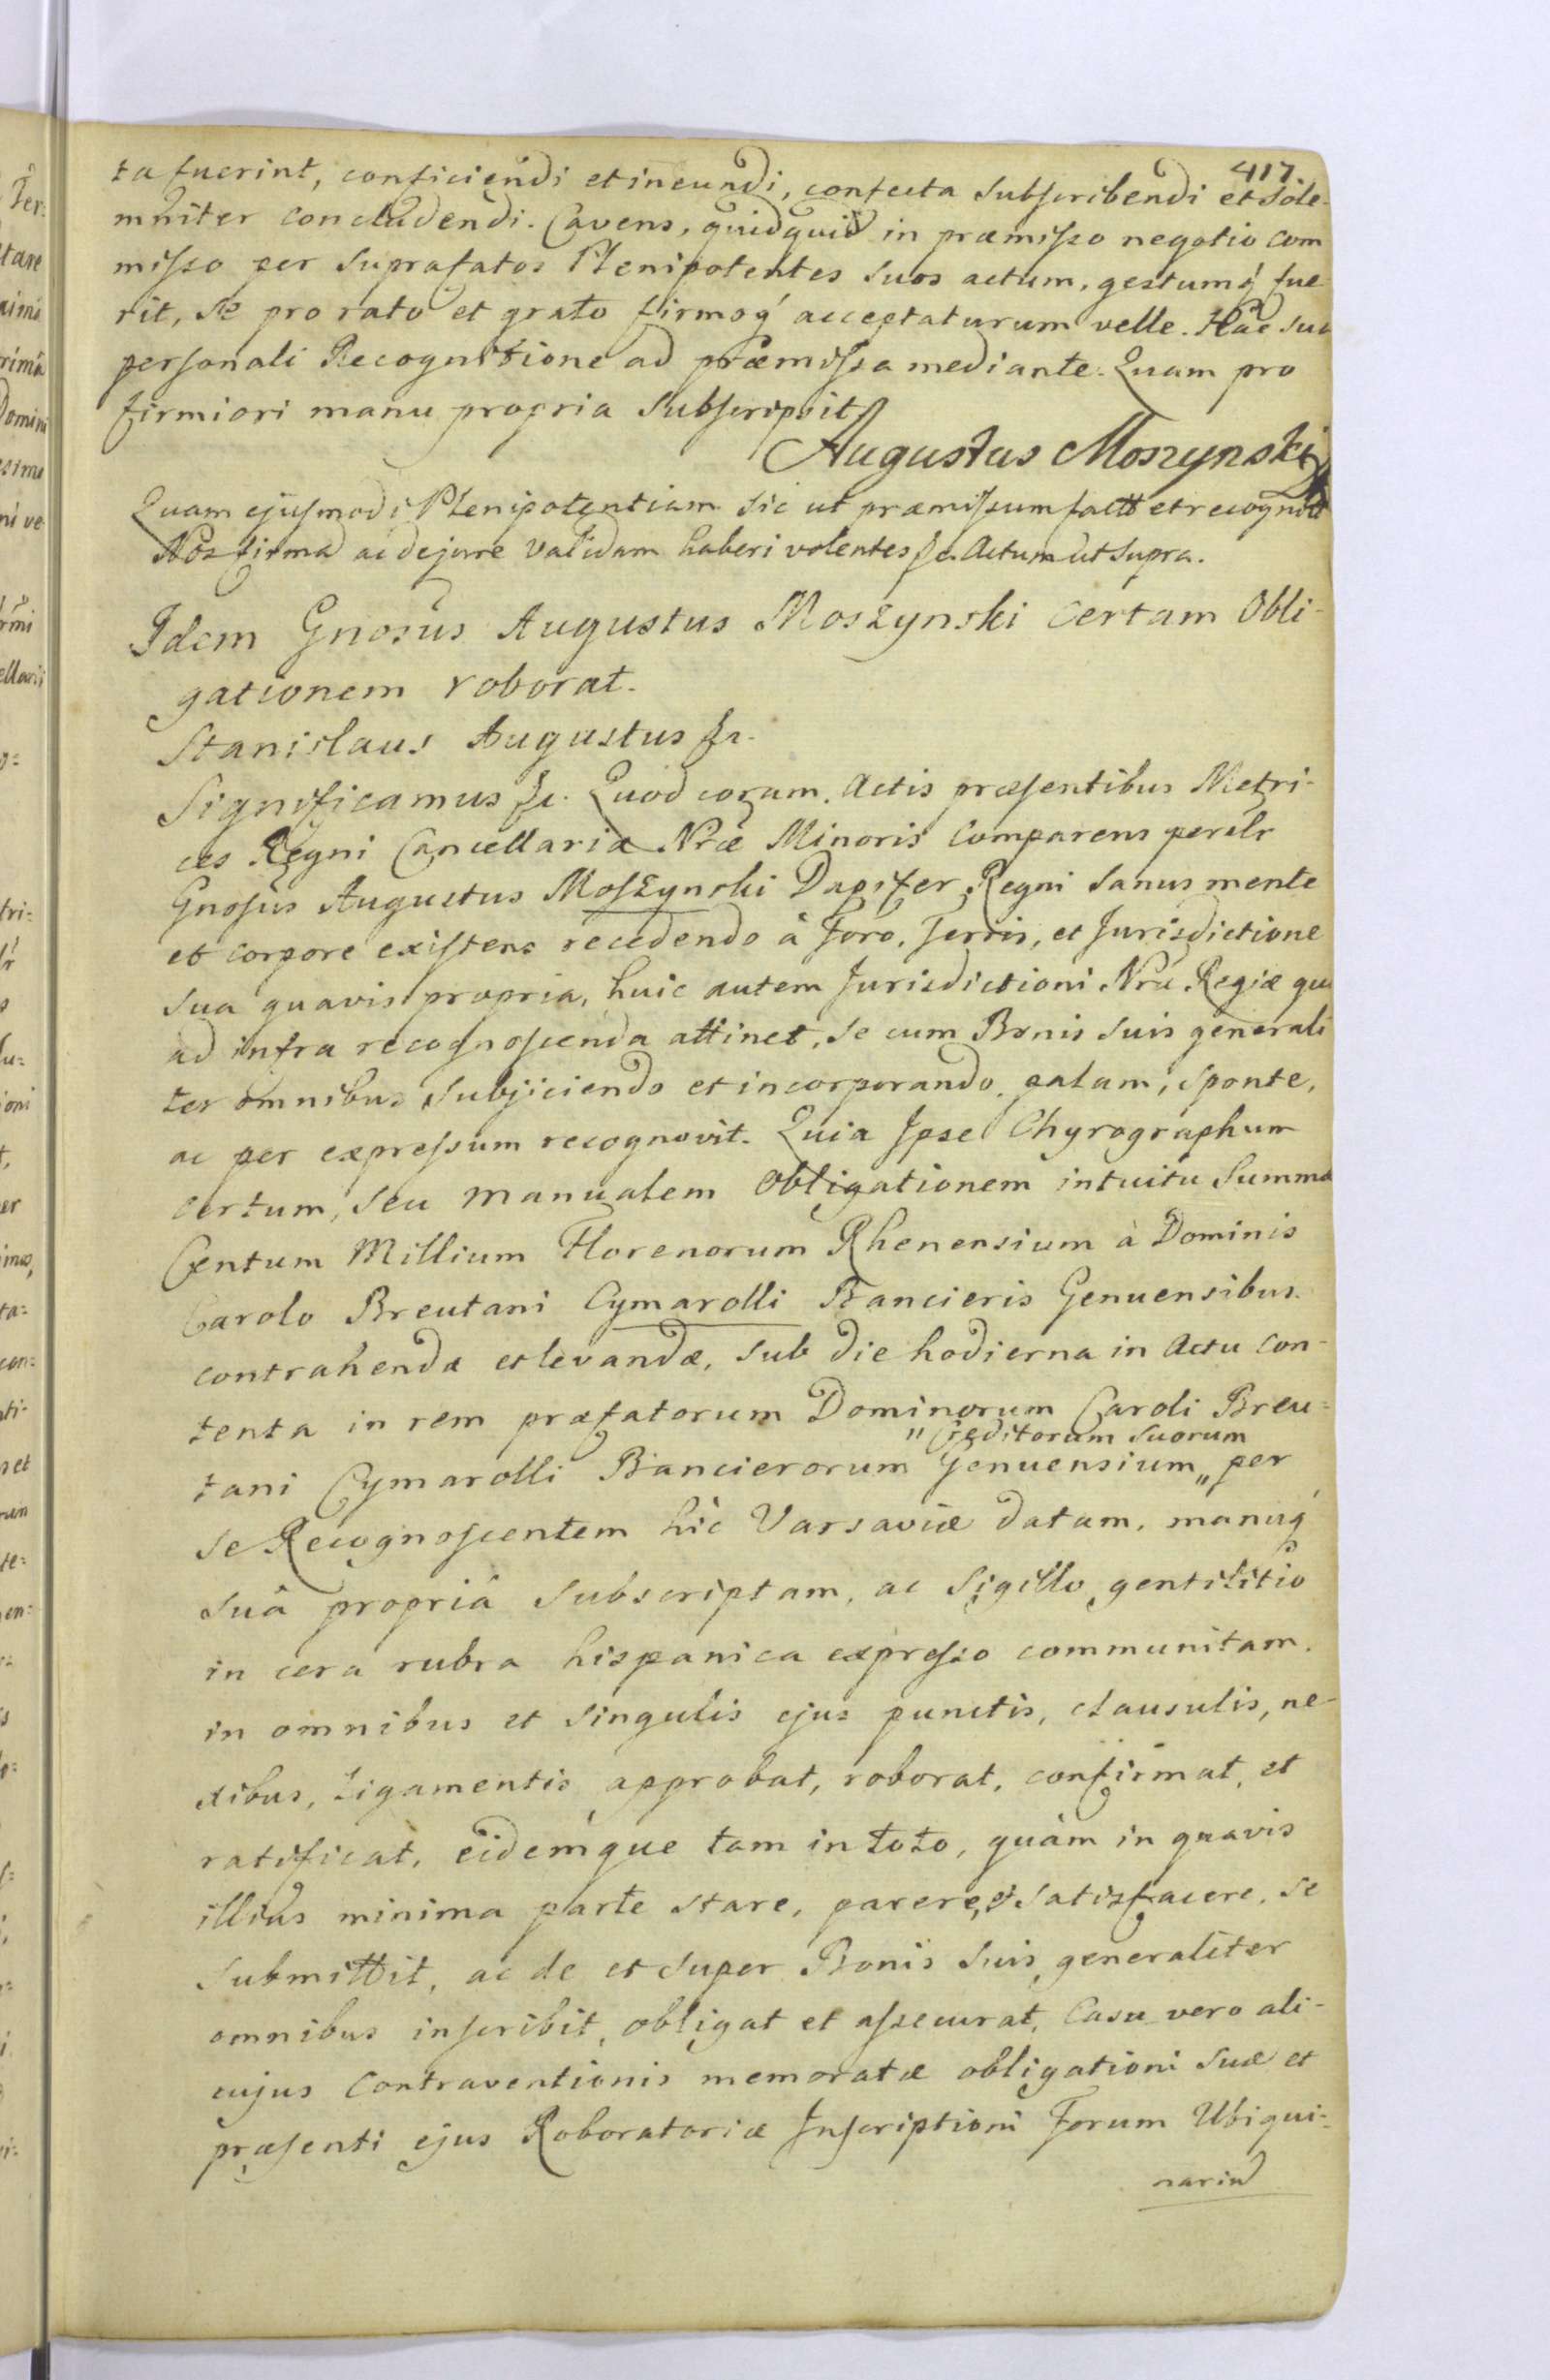 417.
ta fuerint, conficiendi et ineundi, confecta subscribendi et sole-
mniter concludendi. Cavens, quidquid in præmisso negotio com
misso per suprafatos Plenipotentes suos actum, gestumq́ fue
rit, se pro rato et grato firmoq́ acceptaturum velle. Hac sua
personali Recognitione ad præmissa mediante. Quam pro
firmiori manu propria subscripsit
Augustus Moszynski
Quam ejusmodi Plenipotentiam sic ut præmissum factt et recognitt
Nos firmã ac de jure validam haberi volentes &c. Actum ut supra.
Idem Gnosus Augustus Moszynski certam Obli-
gationem roborat.
Stanislaus Augustus &c.
Significamus &c. Quod coram Actis præsentibus Metri-
ces Regni Cancellariæ Nræ Minoris comparens perslr
Gnosus Augustus Moszynski Dapifer Regni sanus mente
et corpore existens recedendo à Foro, Terris, et Jurisdictione
sua quavis propria, huic autem Jurisdictioni Nræ Regiæ quo
ad infra recognoscenda attinet, se cum Bonis suis generali
ter omnibus subjiciendo et incorporando, palam, sponte,
ac per expressum recognovit. Quia Ipse Chyrographum
certum, seu manualem Obligationem intuitu Summæ
Centum Millium Florenorum Rhenensium à Dominis
Carolo Breutani Cymarolli Bancieris Genuensibus
contrahendæ et levandæ, sub die hodierna in Actu con-
tenta in rem præfatorum Dominorum Caroli Breu-
" Creditorum suorum
tani Cymarolli Bancierorum Genuensium " per
se Recognoscentem hic Varsaviæ datam, manuq́
suâ propriâ subscriptam, ac Sigillo gentilitio
in cera rubra hispanica expresso communitam.
in omnibus et singulis ejus punctis, clausulis, ne-
xibus, ligamentis approbat, roborat, confirmat, et
ratificat, eidemque tam in toto, quàm in quavis
illius minima parte stare, parere, et satisfacere, se
submittit, ac de et super Bonis suis generaliter
omnibus inscribit, obligat et assecurat, Casu vero ali-
cujus Contraventionis memoratæ obligationi suæ et
præsenti ejus Roboratoriæ Inscriptioni Forum Ubiqui-
nariũ